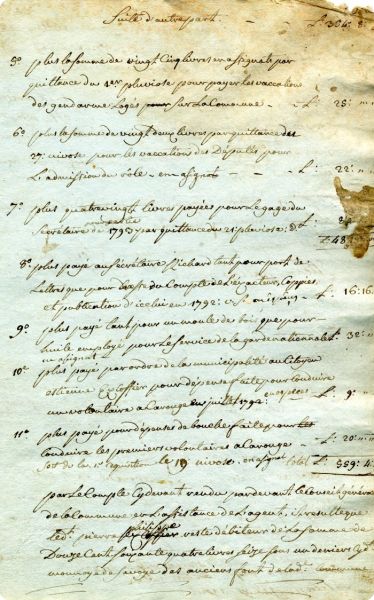 Suite d'autre part. L: 304: 8:
5º plus la somme de vingt cinq livres en assignats par
quittance du 1er pluviose pour payer les vaccations
des gendarme Logés pour sur la Comunne - L: 25: "
6º plus la somme de vingt deux livres par quittance des
27: nivose pour les vaccation des Députés pour
L'admission du rôle en asignat - L: 22: "
7º plus quatre vingt livres payées pour Le gage du
Secrétaire de 1793 par quittance du 21 pluviose: L:
8º plus payé au Sécrétaire Richard tant pour port de
Lettres que pour du Compte de l'exacteur, Coppies
et publication d'icelui en 1792: L: 16:16
9º plus payé tant pour un moule de bois que pour
huile employé pour Le Service de la garde nationnale L: 32:
en asignat
10º plus payé par ordre de la municipalité au Citoyen
etienne pour dépense faite pour conduire
un volontaire a Carouge en juillet 1792: en espèces L: 9:
11º plus payé pour dépenses de bouche faite pour
conduire les premiers volontaires a Carouge L: 20:
Lors de la 1e réquisition le 19 nivose: en asignat total L: 559: 4
par Le Compte Cydevant rendu par devant le conseil général
de la Commune en L'assistance de L'agent, il résulte que
Led. pierre philippe reste débiteur de La somme de
Douze Cent soixante quatre livres seize sous un deniers
monnoye de Savoye des anciens font de lad. commune